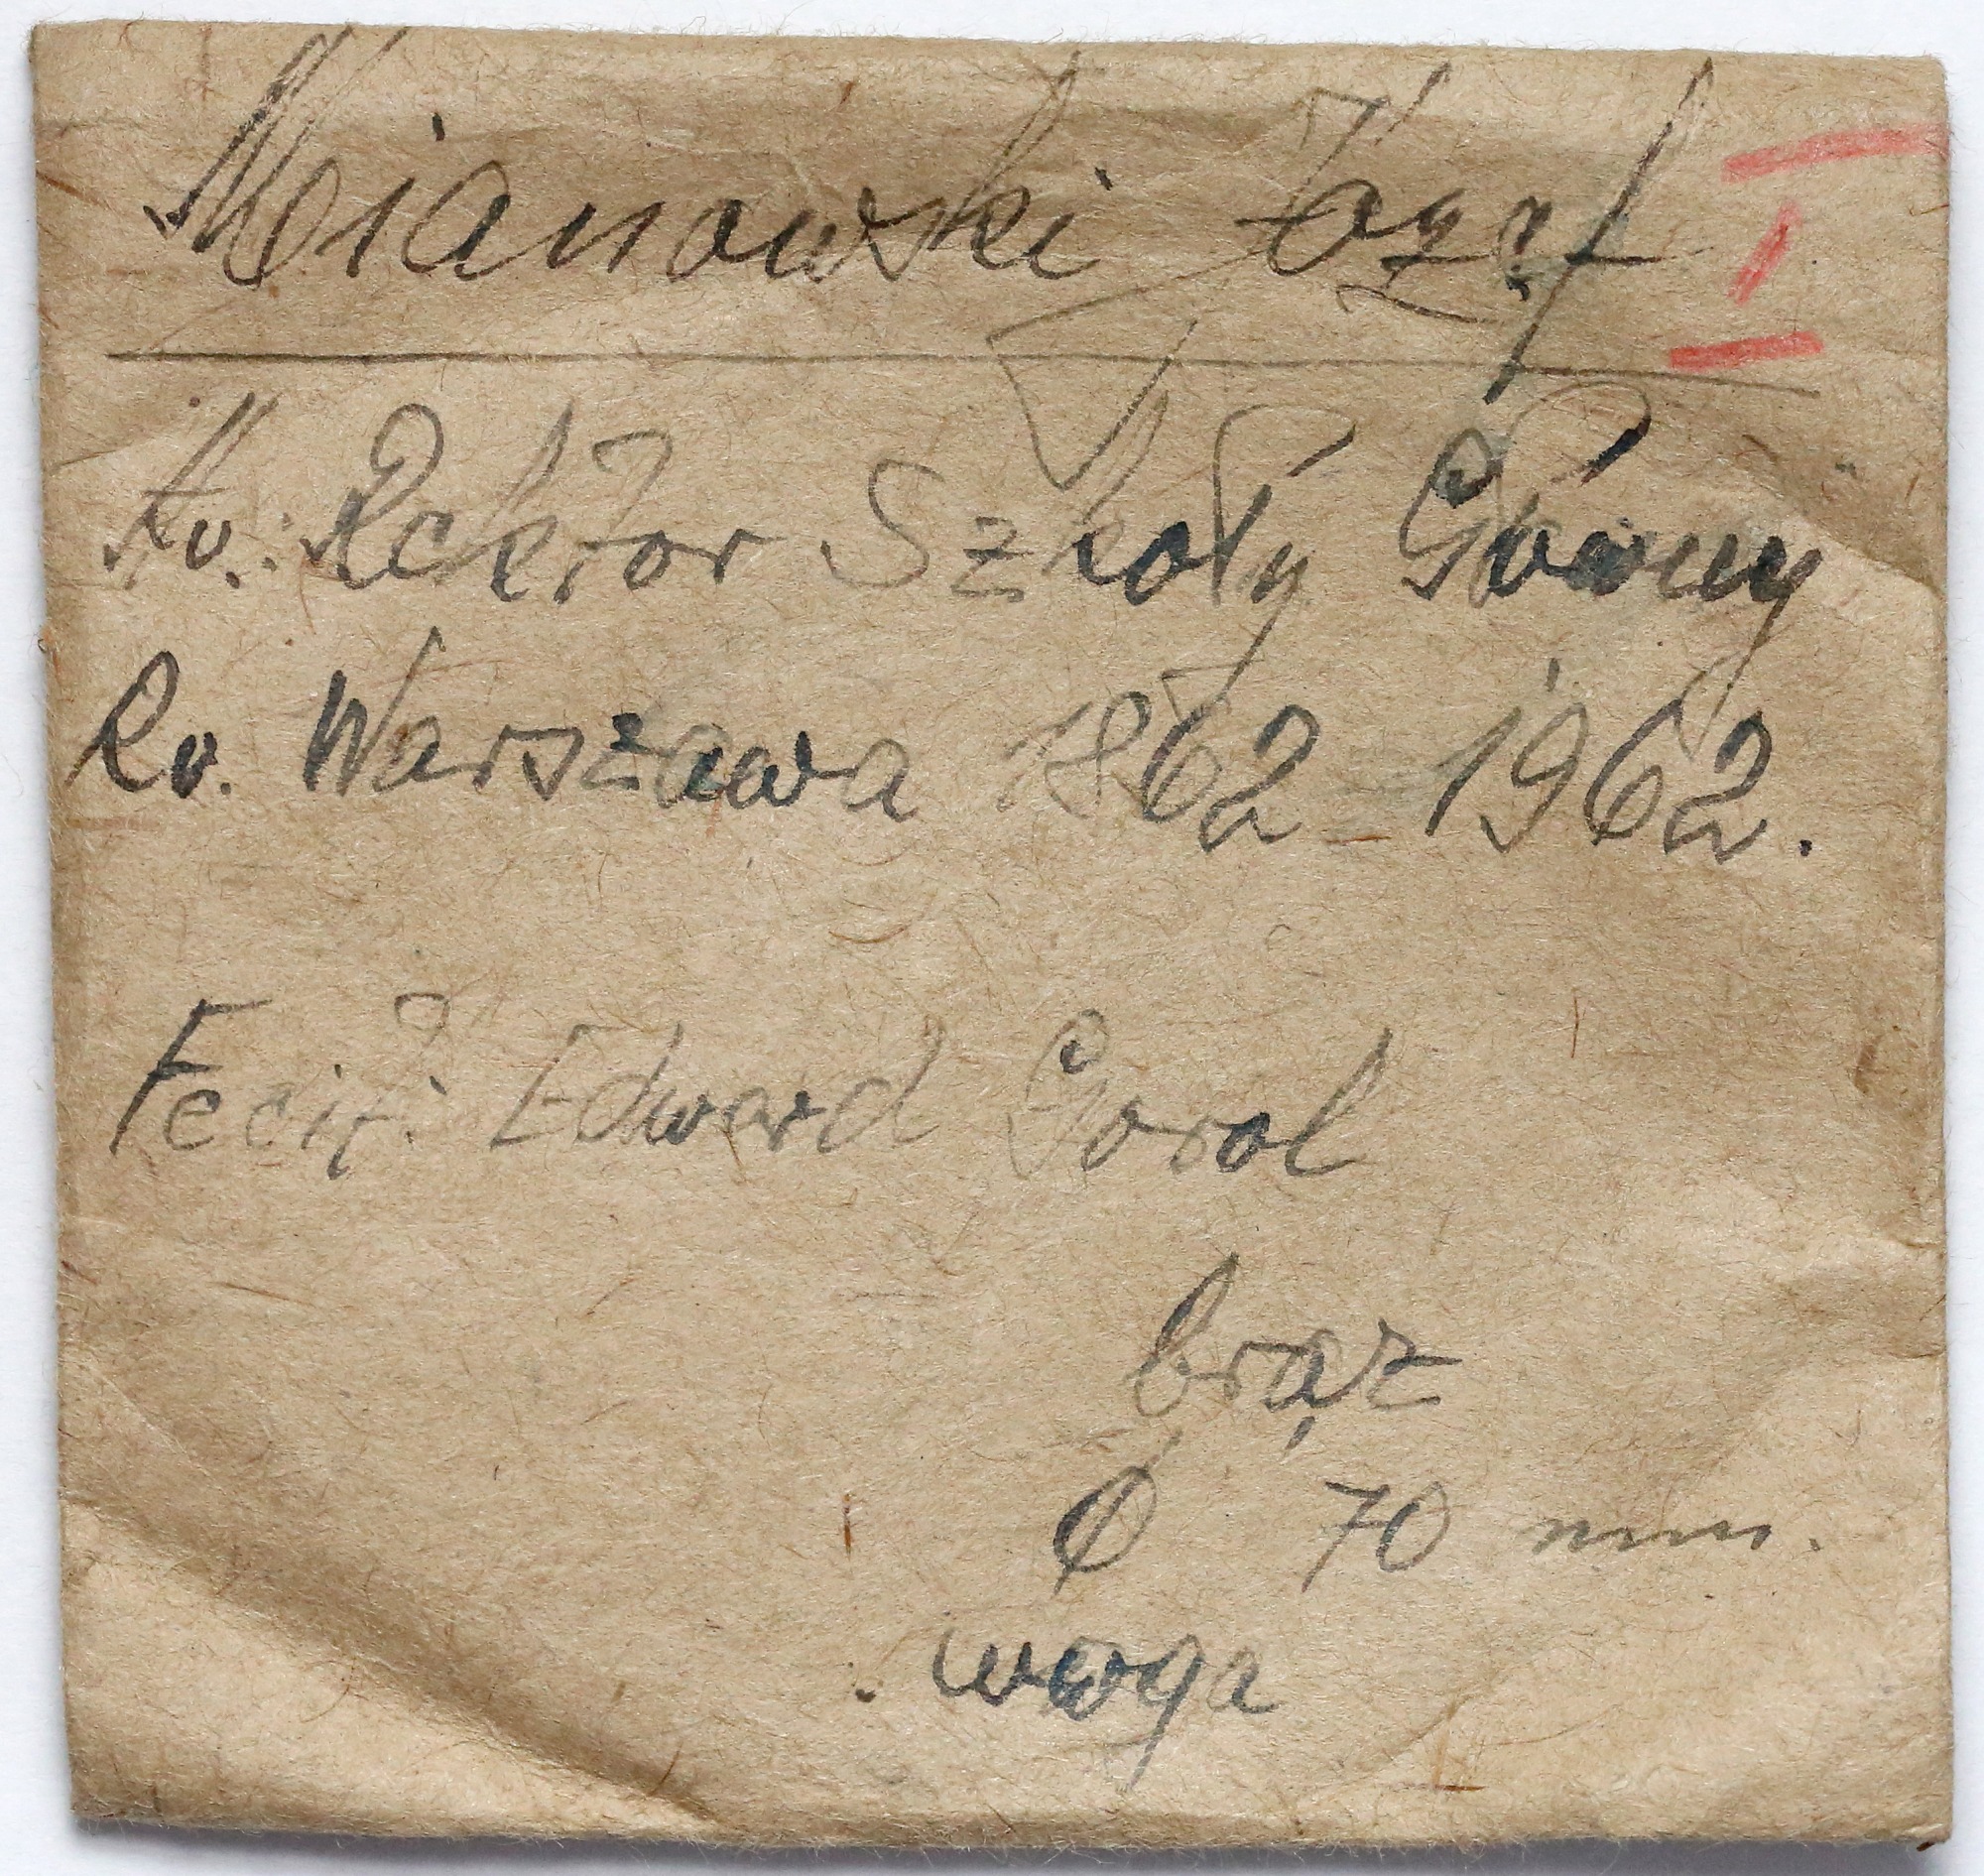 Mianowski Józef
Av.: Rektor Szkoły Główny
Rv. Warszawa 1862 1962.
Fecit: Edward Gorol
brąz
Ø 70 mm.
waga